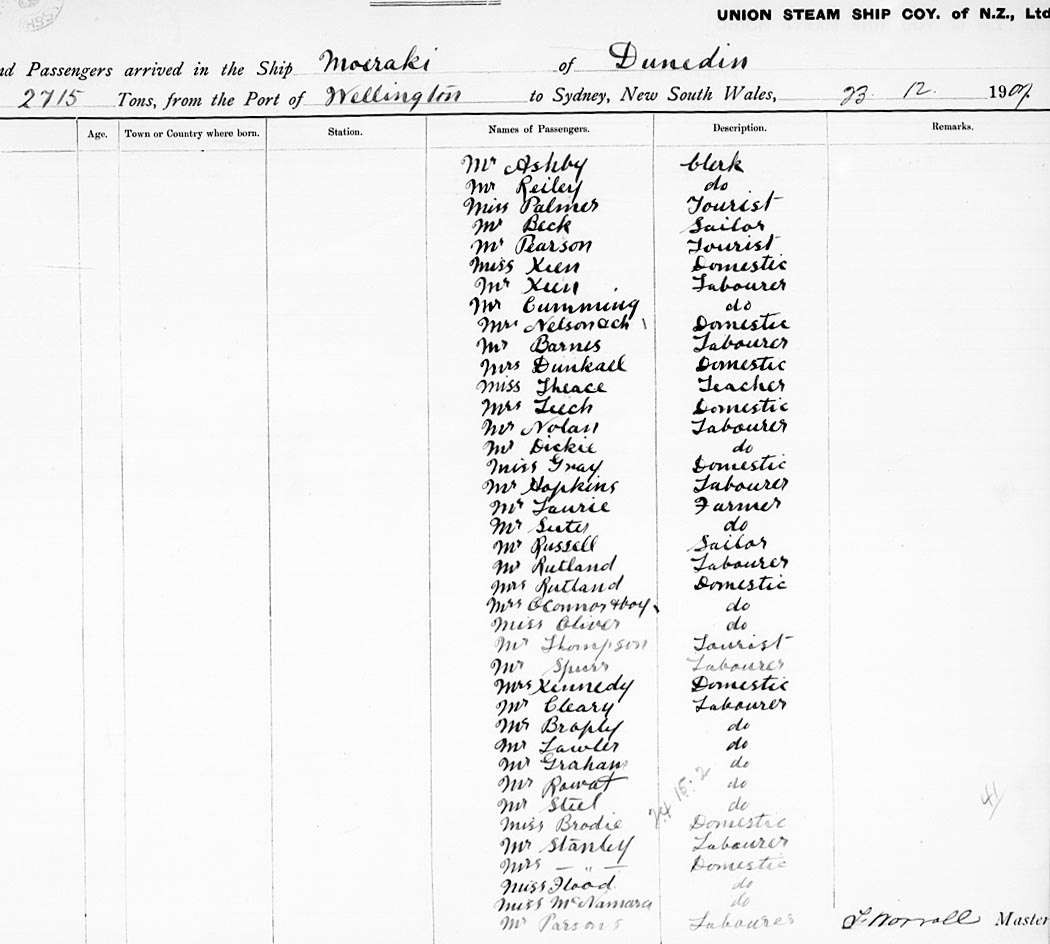 UNION STEAM SHIP COY. of N.Z., Ltd
nd Passengers arrived in the Ship Moeraki of Dunedin
2715 Tons, from the Port of Wellington to Sydney, New South Wales, 23. 12. 1907.
Age. Town or Country where born. Station. Names of Passengers. Description. Remarks.
Mr Ashby Clerk
Mr Reiley do
Miss Palmer Tourist
Mr Beck Sailor
Mr Pearson Tourist
Miss Domestic
Mr Labourer
Mr Cumming do
Mrs Domestic
Mr Barnes Labourer
Mrs Dunkall Domestic
Miss Theace Teacher
Mrs Leech Domestic
Mr Nolan Labourer
Mr Dickie do
Miss Gray Domestic
Mr Hopkins Labourer
Mr Laurie Farmer
Mr do
Mr Russell Sailor
Mr Rutland Labourer
Mrs Rutland Domestic
Mrs OConnor & boy do
Miss Oliver do
Mr Thompson Tourist
Mr Spurr Labourer
Mrs Kennedy Domestic
Mr Cleary Labourer
Mr Brophy do
Mr Lawler do
Mr Graham do
Mr Rowat do
Mr Steel do
Miss Brodie Domestic
Mr Stanley Labourer
Mrs — " — Domestic
Miss Flood do
Miss McNamara do
Mr Parsons Labourer
24 15. 2
41
J. Worrall Master